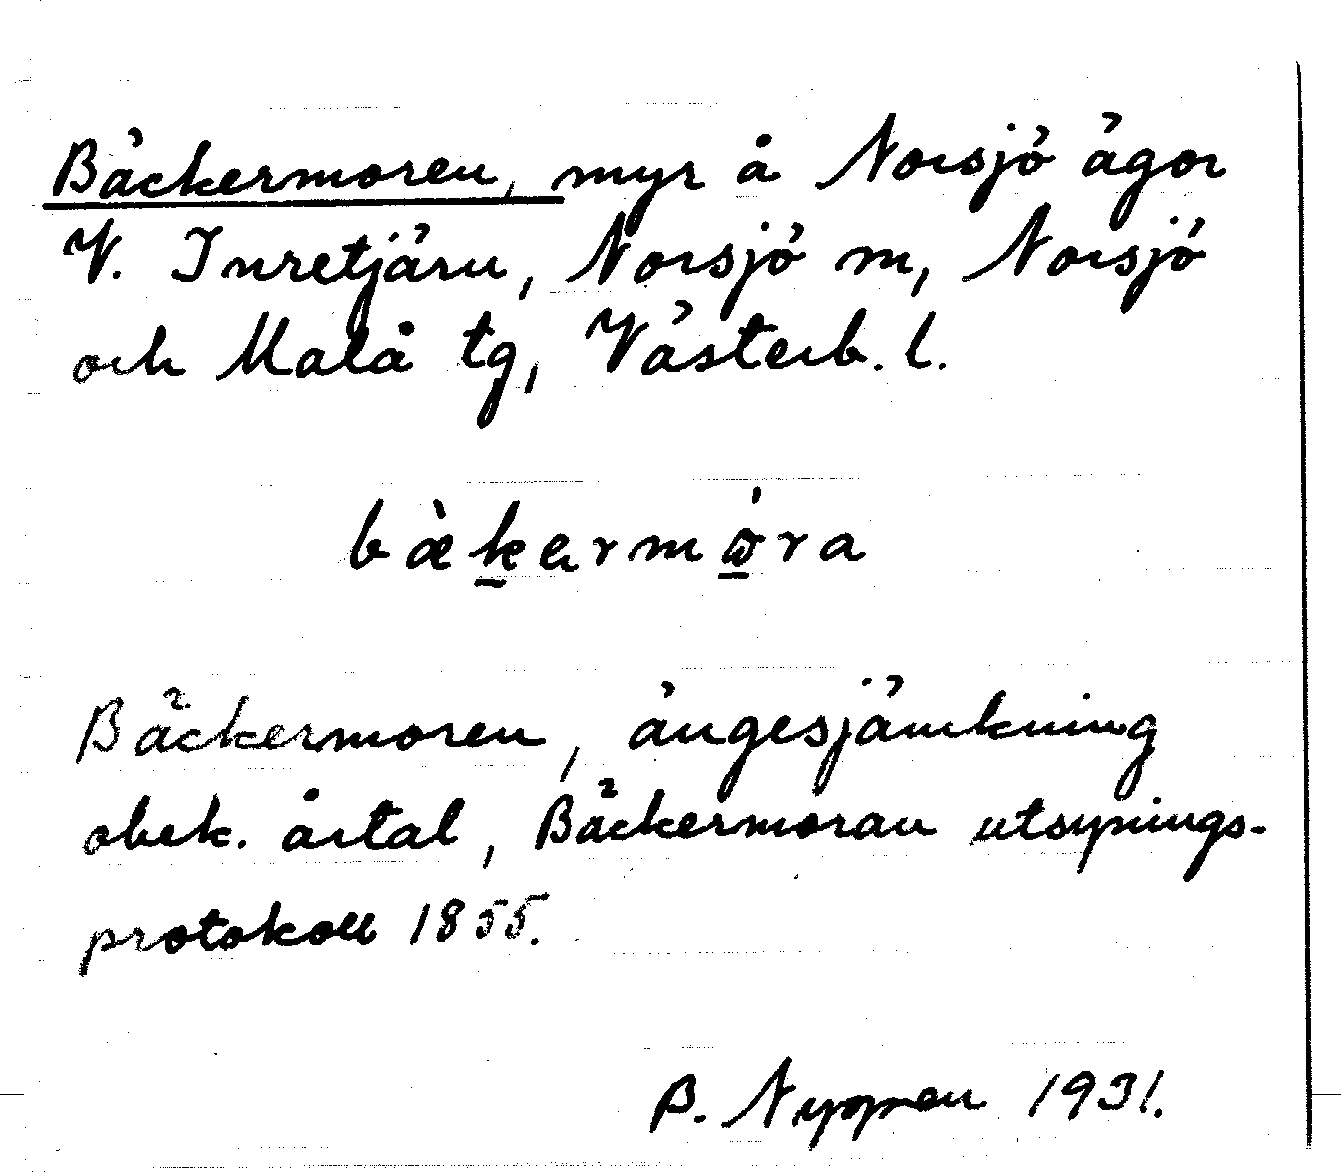 Bäckermoren, myr å Norsjö ägor
V. Inretjärn, Norsjö m, Norsjö
och Malå tg, Västerb. l.
bæ̀kermòra
Bäckermoren, ängesjämkning
obek. årtal, Bäckermoran utsynings-
protokoll 1855.
B. Nyman 1931.